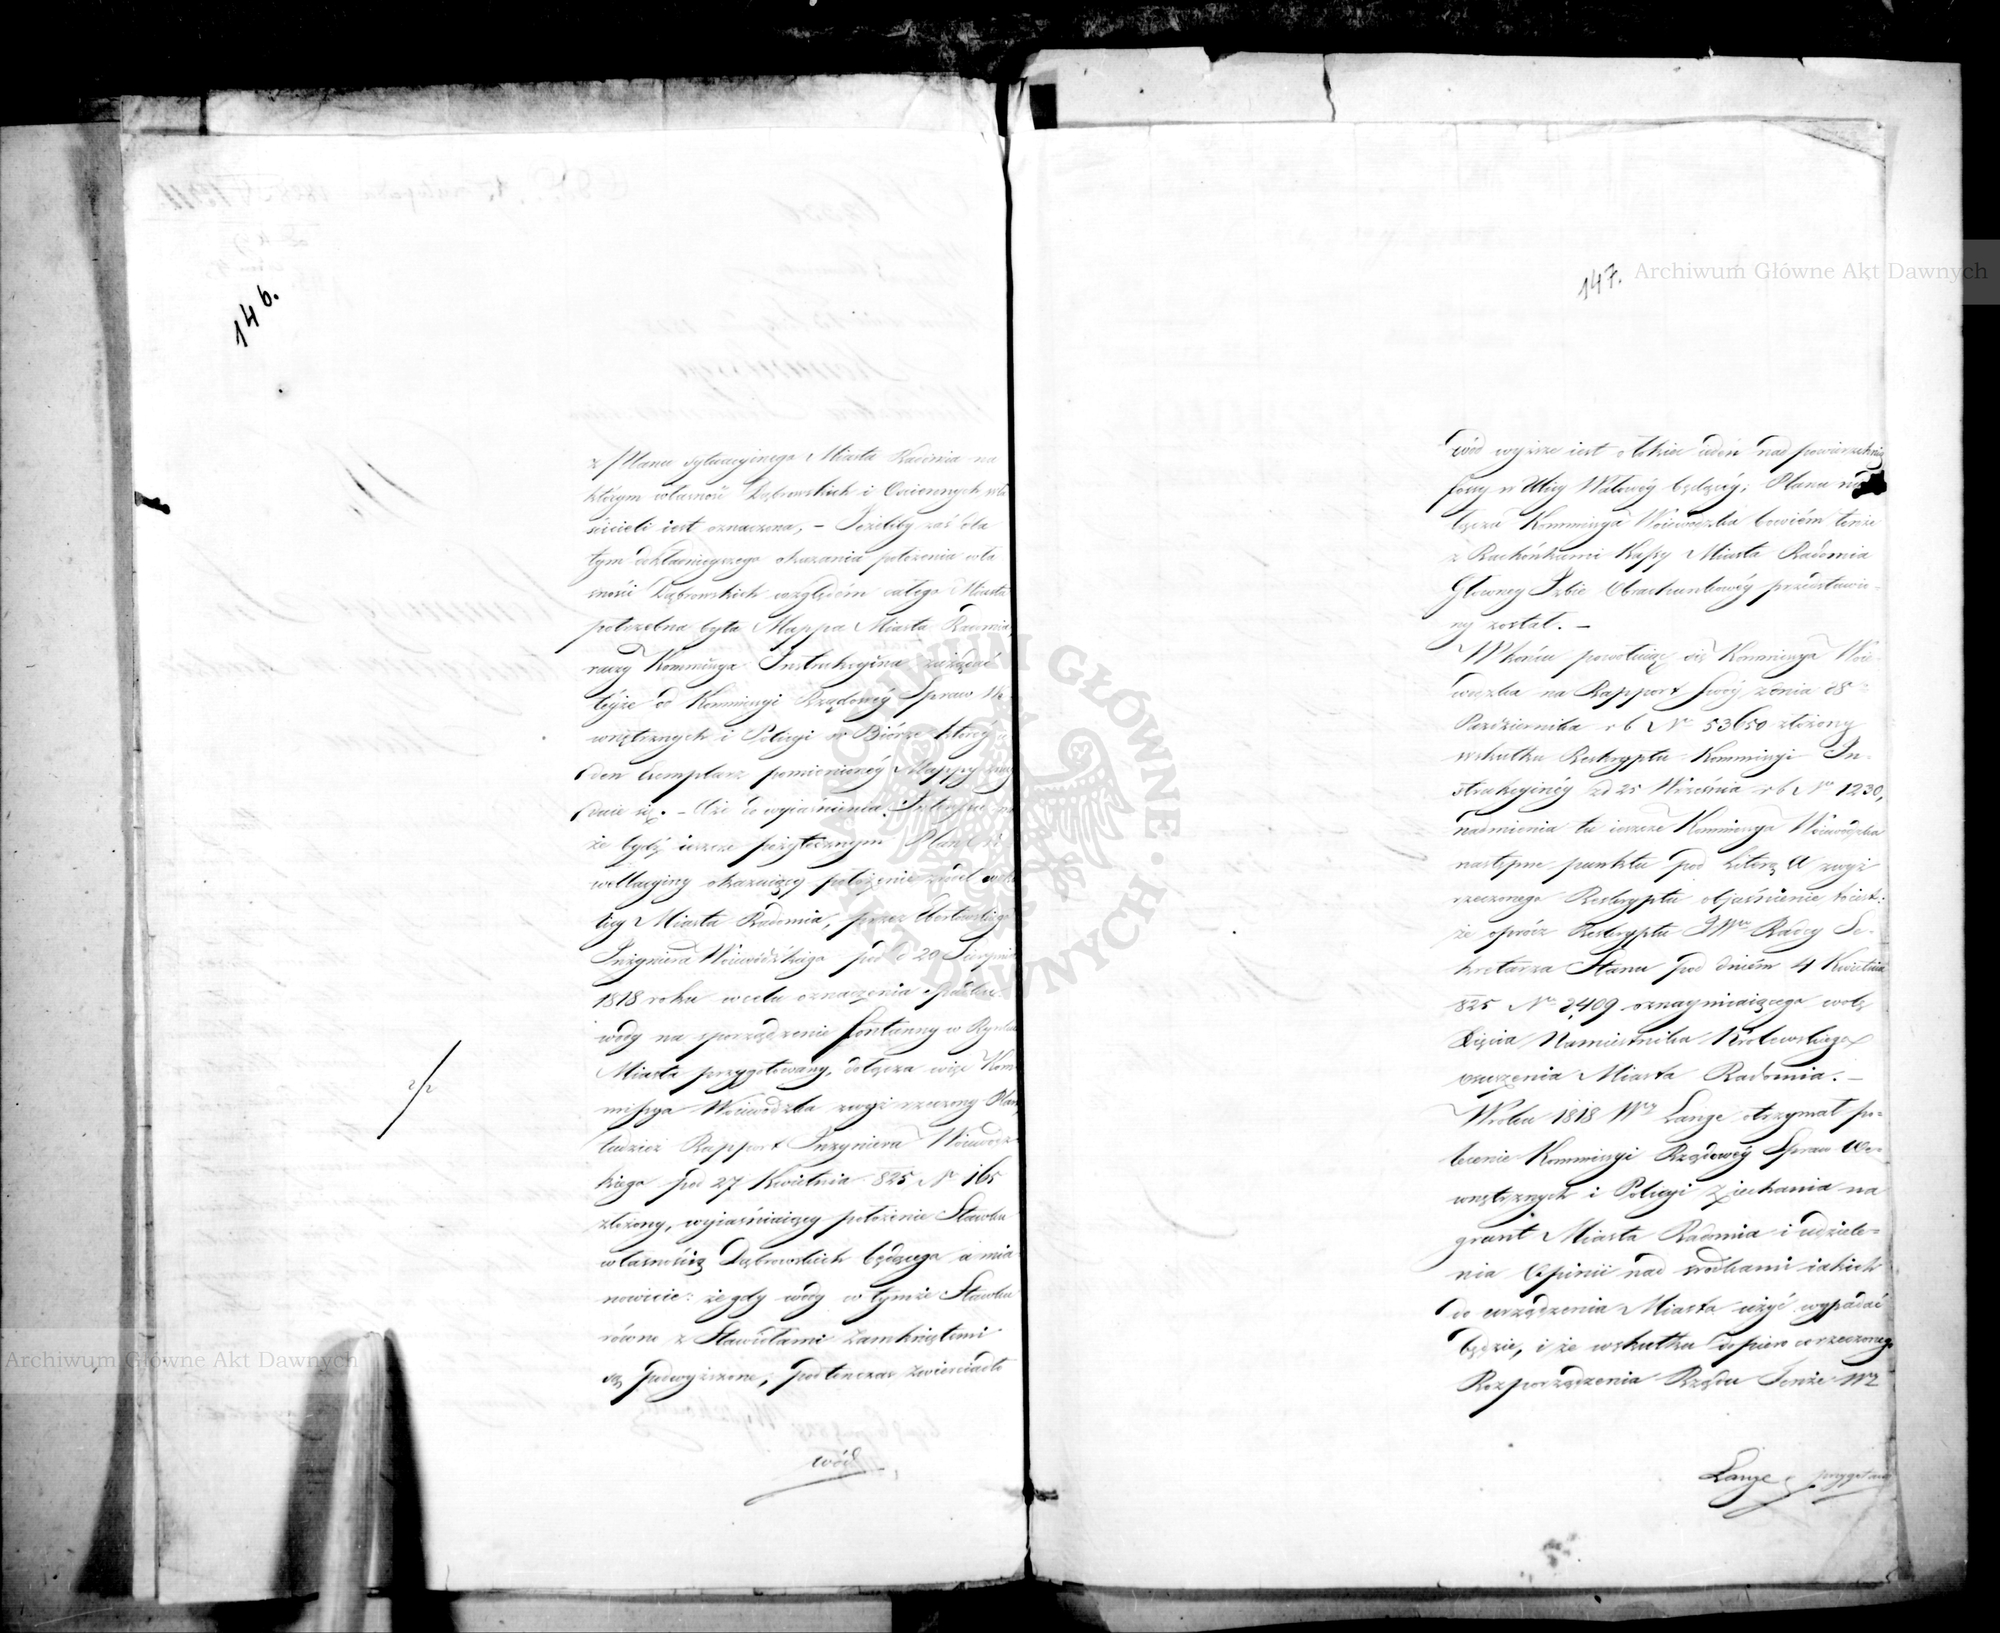 146.
z Planu sytuacyinego Miasta Radomia na
którym własność Dąbrowskich i Ościennych wła
ścicieli iest oznaczona, – Jeżeliby zaś dla
tym dokładnieyszego okazania położenia wła
sności Dąbrowskich względem całego Miasta
potrzebna była Mappa Miasta Radomia,
raczy Kommissya Instrukcyina zażądać
teyże od Kommissyi Rządowéy Spraw We
wnętrznych i Policyi w Biórze któréy ie
den Exemplarz pomienionéy Mappy znay
duie się. – Że do wyiaśnienia Interessu mo
że bydź ieszcze pożytecznym Plan Ni
wellacyiny okazuiący położenie źródeł oko
licy Miasta Radomia, przez
Inżyniera Woiewódzkiego pod d 20 Sierpnia
1818 roku w celu oznaczenia spadku
wody na sporządzenie fontanny w Rynku
Miasta przygotowany, dołącza więc Kom
missya Woiewódzka zwyż rzeczony Plan
tudzież Rapport Inżyniera Woiewódz
kiego pod 27 Kwietnia 825 N 165
złożony, wyiaśniaiący położenie Stawku
własnością Dąbrowskich będącego a mia
nowicie: że gdy wody w tymże Stawku
równo z Stawidłami zamkniętemi
są podwyższone, podtenczas zwierciadło
wód
147.
wód wyższe iest o łokieć ieden nad powierzchnią
fossy w Ulicy Wałowéy będącéy; Planu nie
łącza Kommissya Woiewódzka bowiém tenże
z Rachunkami Kassy Miasta Radomia
Głowney Izbie Obrachunkowéy przedstawio-
ny został. –
W końcu powołuiąc się Kommissya Woie
wódzka na Rapport swóy z dnia 28
Października r b No 53650 złożony
wskutku Reskryptu Kommissyi In-
strukcyinéy z d 25 Września r b No 1230,
nadmienia tu ieszcze Kommissya Woiewódzka
następne punktu pod Literą A zwyż
rzeczonego Reskryptu obiaśnienie to iest:
że oprócz Reskryptu JWo Radcy Se-
kretarza Stanu pod dniém 4 Kwietnia
825 No 2,409 oznaymiaiącego wolę
Xięcia Namiestnika Królewskiego
urządzenia Miasta Radomia. –
W roku 1818 Wy Lange otrzymał po-
lecenie Kommissyi Rządowéy Spraw We-
wnętrznych i Policyi ziechania na
grunt Miasta Radomia i udziele-
nia Opinii nad środkami iakich
do urządzenia Miasta użyć wypadać
będzie, i że wskutku dopiero rzeczonego
Rozporządzenia Rządu Tenże Wy
Lange przygotował
Archiwum Główne Akt Dawnych
Archiwum Główne Akt Dawnych
ARCHIWUM GŁÓWNE AKT DAWNYCH